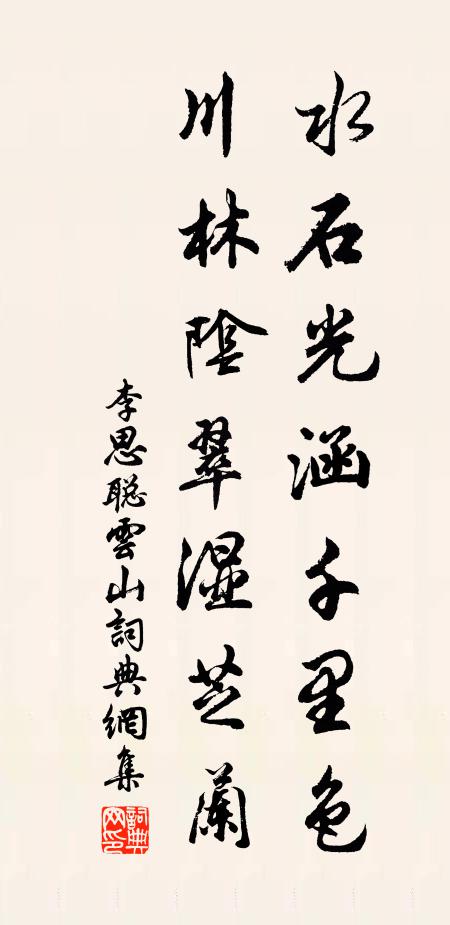 水石光涵千里色
川林陰翠濕芝蘭
李思聪雲山詞典網集
詞典
网印